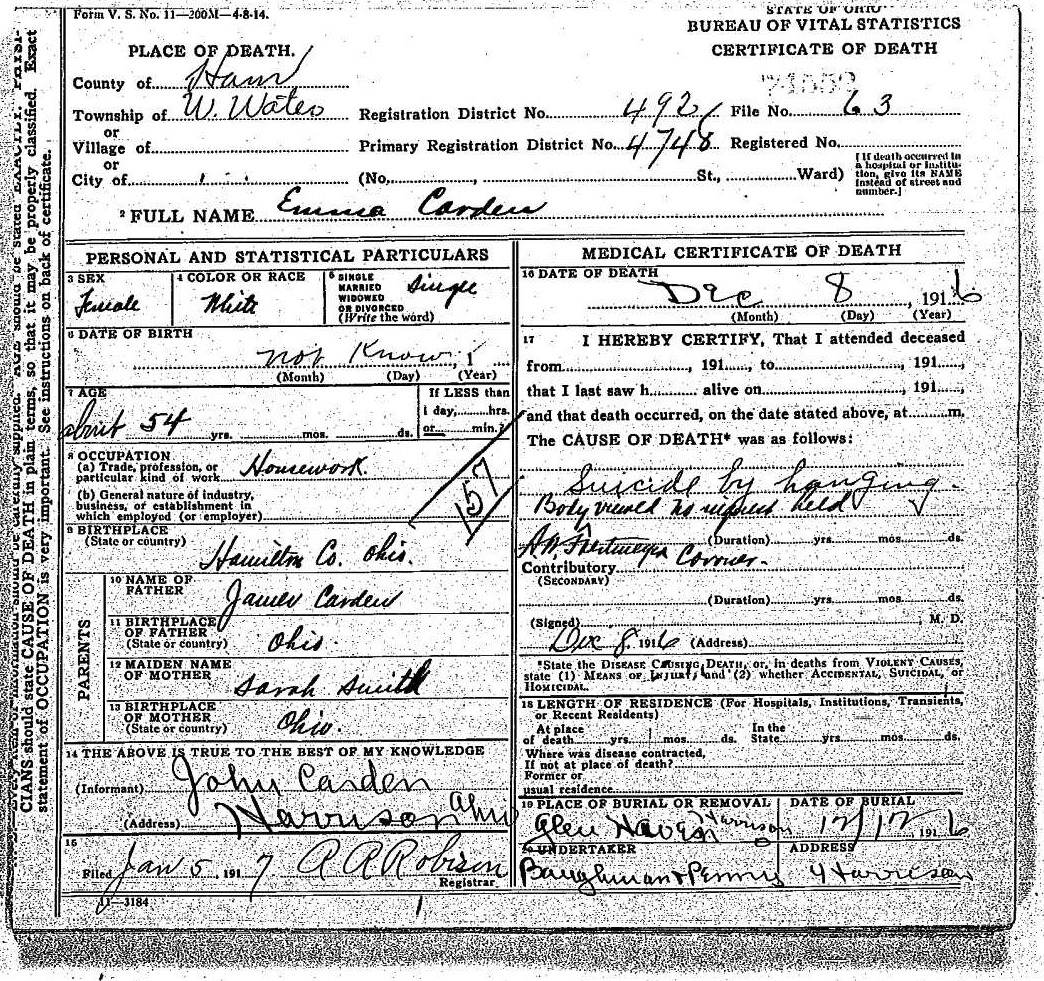 Form V. S. No. 11—200M—4-8-14.
STATE OF OHIO
BUREAU OF VITAL STATISTICS
CERTIFICATE OF DEATH
PLACE OF DEATH.
County of Ham
Township of W. Water
or
Village of
or
City of
Registration District No. 492 File No. 63
Primary Registration District No. 4748 Registered No.
(No. , St., Ward)
[If death occurred in
a hospital or institu-
tion, give its NAME
instead of street and
number.]
2 FULL NAME Emma Carden
PERSONAL AND STATISTICAL PARTICULARS
3 SEX
Female
4 COLOR OR RACE
White
5 SINGLE
MARRIED
WIDOWED
OR DIVORCED
(Write the word)
Single
6 DATE OF BIRTH
not Know , 1
(Month) (Day) (Year)
7 AGE
about 54 yrs. mos. ds.
If LESS than
1 day, hrs.
or min.?
157
8 OCCUPATION
(a) Trade, profession, or
particular kind of work Housework.
(b) General nature of industry,
business, or establishment in
which employed (or employer)
9 BIRTHPLACE
(State or country)
Hamilton Co. Ohio.
PARENTS
10 NAME OF
FATHER
James Carden
11 BIRTHPLACE
OF FATHER
(State or country)
Ohio.
12 MAIDEN NAME
OF MOTHER
Sarah Smith
13 BIRTHPLACE
OF MOTHER
(State or country)
Ohio.
14 THE ABOVE IS TRUE TO THE BEST OF MY KNOWLEDGE
(Informant) John Carden
(Address) Harrison Ohio
15
Filed Jan 5, 1917 R A Robison
Registrar.
11—3184
MEDICAL CERTIFICATE OF DEATH
16 DATE OF DEATH
Dec 8 , 1916
(Month) (Day) (Year)
17 I HEREBY CERTIFY, That I attended deceased
from , 191 , to , 191 ,
that I last saw h alive on , 191 ,
and that death occurred, on the date stated above, at m.
The CAUSE OF DEATH* was as follows:
Suicide by hanging.
Body viewed no inquest held
(Duration) yrs. mos. ds.
Coroner.
Contributory
(SECONDARY)
(Duration) yrs. mos. ds.
(Signed) , M. D.
Dec 8, 1916 (Address)
*State the DISEASE CAUSING DEATH, or, in deaths from VIOLENT CAUSES,
state (1) MEANS OF INJURY; and (2) whether ACCIDENTAL, SUICIDAL, or
HOMICIDAL.
18 LENGTH OF RESIDENCE (For Hospitals, Institutions, Transients,
or Recent Residents)
At place
of death yrs. mos. ds.
In the
State yrs. mos. ds.
Where was disease contracted,
If not at place of death?
Former or
usual residence
19 PLACE OF BURIAL OR REMOVAL
Glen Haven Harrison
DATE OF BURIAL
12/12 1916
20 UNDERTAKER
Baughman & Penny
ADDRESS
Harrison
CIANS should state CAUSE OF DEATH in plain terms, so that it may be properly classified. Exact
statement of OCCUPATION is very important. See instructions on back of certificate.